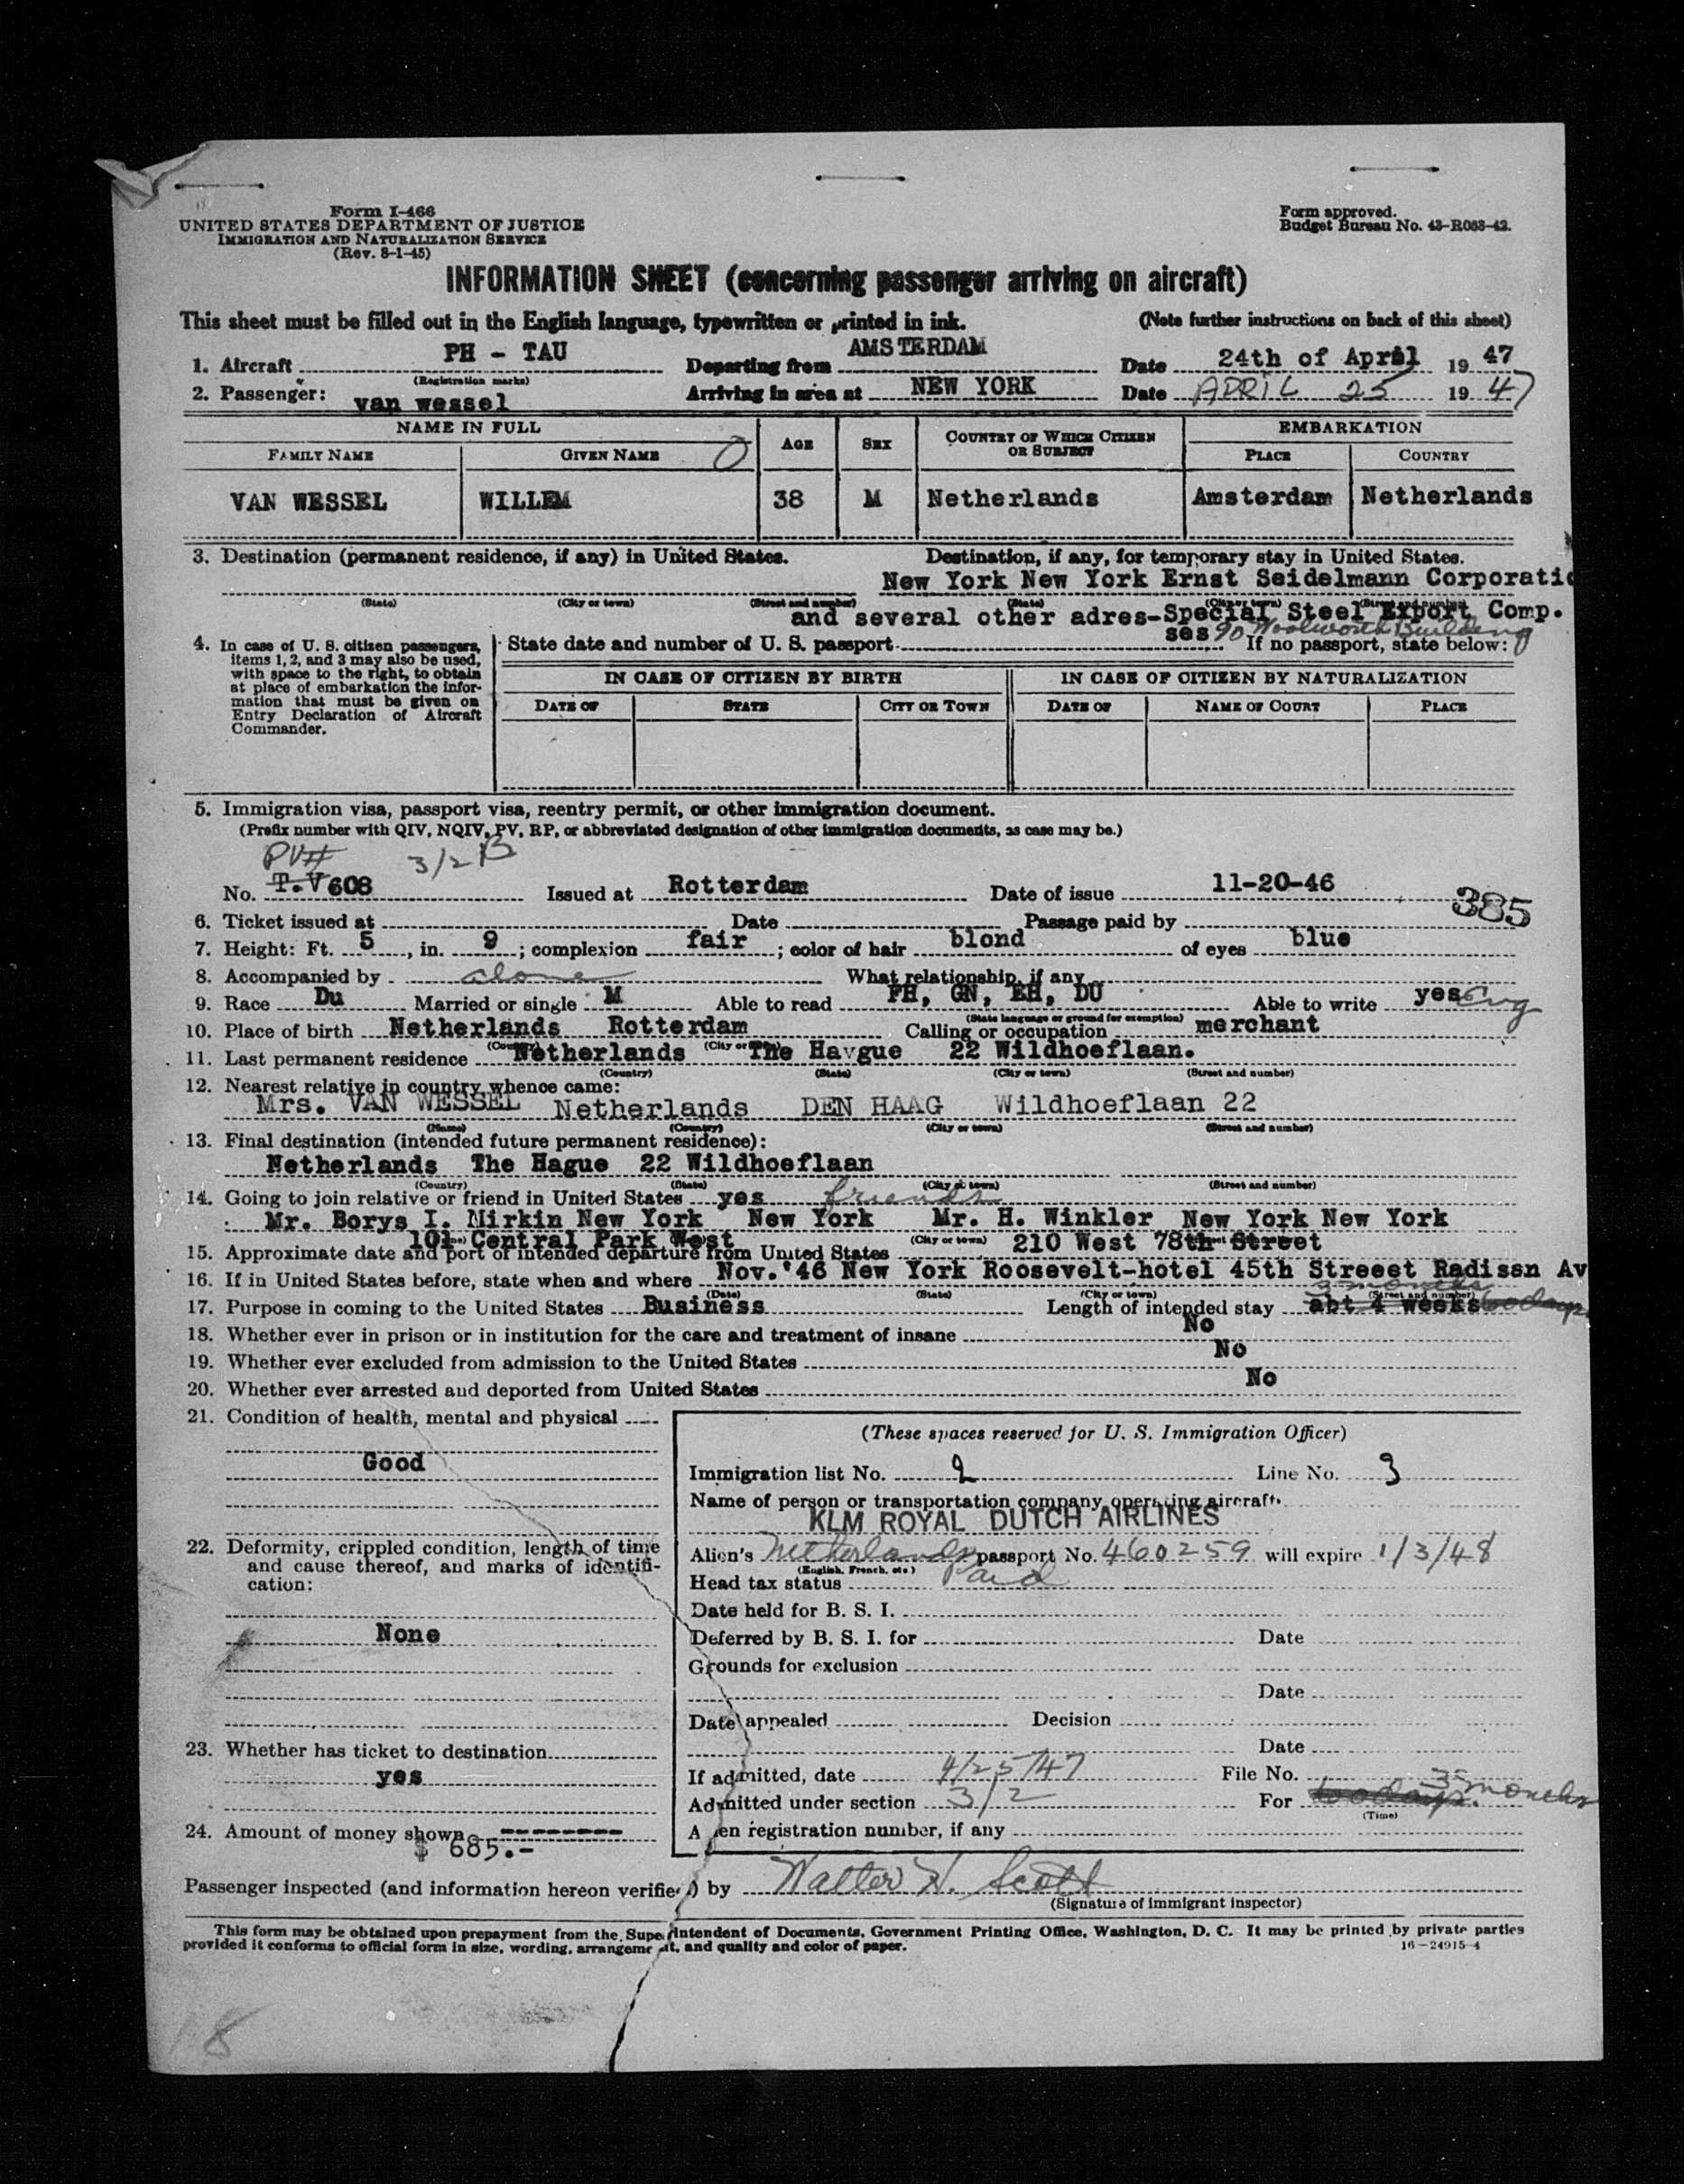 Form I-466
UNITED STATES DEPARTMENT OF JUSTICE
IMMIGRATION AND NATURALIZATION SERVICE
(Rev. 8-1-45)
Form approved.
Budget Bureau No. 43-R063-42.
INFORMATION SHEET (concerning passenger arriving on aircraft)
This sheet must be filled out in the English language, typewritten or printed in ink. (Note further instructions on back of this sheet)
1. Aircraft PH - TAU Departing from AMSTERDAM Date 24th of April 19 47
(Registration marks)
2. Passenger: van wessel Arriving in area at NEW YORK Date APRIL 25 19 47
NAME IN FULL AGE SEX COUNTRY OF WHICH CITIZEN OR SUBJECT EMBARKATION
FAMILY NAME GIVEN NAME PLACE COUNTRY
VAN WESSEL WILLEM 38 M Netherlands Amsterdam Netherlands
3. Destination (permanent residence, if any) in United States. Destination, if any, for temporary stay in United States.
New York New York Ernst Seidelmann Corporatio
(State) (City or town) (Street and number) (State) (City or town) (Street and number)
and several other adres- Special Steel Export Comp.
ses 90 Woolworth Building
4. In case of U. S. citizen passengers, items 1, 2, and 3 may also be used, with space to the right, to obtain at place of embarkation the information that must be given on Entry Declaration of Aircraft Commander.
State date and number of U. S. passport If no passport, state below:
IN CASE OF CITIZEN BY BIRTH IN CASE OF CITIZEN BY NATURALIZATION
DATE OF STATE CITY OR TOWN DATE OF NAME OF COURT PLACE
5. Immigration visa, passport visa, reentry permit, or other immigration document.
(Prefix number with QIV, NQIV, PV, RP, or abbreviated designation of other immigration documents, as case may be.)
PV# 3/2 B
No. T.V 608 Issued at Rotterdam Date of issue 11-20-46 385
6. Ticket issued at Date Passage paid by
7. Height: Ft. 5, in. 9; complexion fair; color of hair blond of eyes blue
8. Accompanied by alone What relationship, if any
9. Race Du Married or single M Able to read FH, GN, EH, DU Able to write yes Eng
(State language or ground for exemption)
10. Place of birth Netherlands Rotterdam Calling or occupation merchant
(Country) (City or town)
11. Last permanent residence Netherlands The Havgue 22 Wildhoeflaan.
(Country) (State) (City or town) (Street and number)
12. Nearest relative in country whence came:
Mrs. VAN WESSEL Netherlands DEN HAAG Wildhoeflaan 22
(Name) (Country) (City or town) (Street and number)
13. Final destination (intended future permanent residence):
Netherlands The Hague 22 Wildhoeflaan
(Country) (State) (City or town) (Street and number)
14. Going to join relative or friend in United States yes friends
Mr. Borys I. Mirkin New York New York Mr. H. Winkler New York New York
101 Central Park West (City or town) 210 West 78th Street
15. Approximate date and port of intended departure from United States
16. If in United States before, state when and where Nov.'46 New York Roosevelt-hotel 45th Streeet Radissn Av
(Date) (State) (City or town) (Street and number)
3 months
17. Purpose in coming to the United States Business Length of intended stay abt 4 weeks 60 days
18. Whether ever in prison or in institution for the care and treatment of insane No
19. Whether ever excluded from admission to the United States No
20. Whether ever arrested and deported from United States No
21. Condition of health, mental and physical
Good
22. Deformity, crippled condition, length of time and cause thereof, and marks of identification:
None
23. Whether has ticket to destination
yes
24. Amount of money shown
$ 685.-
(These spaces reserved for U. S. Immigration Officer)
Immigration list No. 2 Line No. 3
Name of person or transportation company operating aircraft
KLM ROYAL DUTCH AIRLINES
Alien's Netherlands passport No. 460259 will expire 1/3/48
(English, French, etc.)
Head tax status Paid
Date held for B. S. I.
Deferred by B. S. I. for Date
Grounds for exclusion
Date
Date appealed Decision
Date
If admitted, date 4/25/47 File No.
Admitted under section 3/2 For 60 days. 3 months
(Time)
Alien registration number, if any
Passenger inspected (and information hereon verified) by Walter H. Scott
(Signature of immigrant inspector)
This form may be obtained upon prepayment from the Superintendent of Documents, Government Printing Office, Washington, D. C. It may be printed by private parties
provided it conforms to official form in size, wording, arrangement, and quality and color of paper. 16-24915-4
18